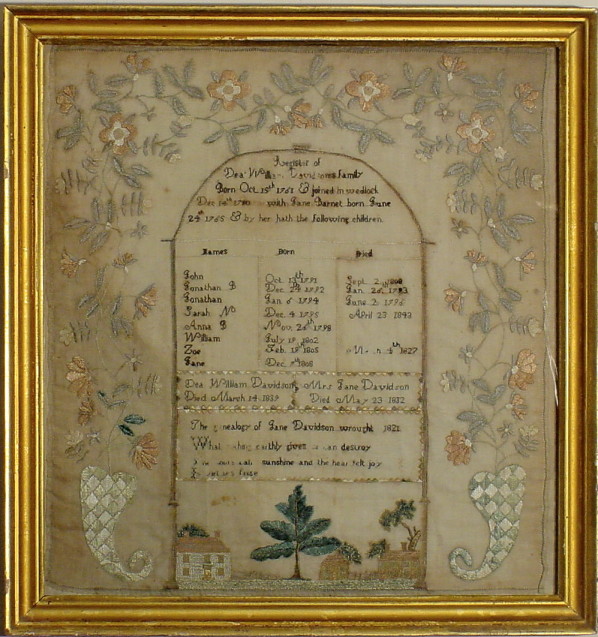 Register of
Dea William Davidsons family
Born Oct 15th 1761 & joined in wedlock
Dec with Jane Barnet born June
24th 1765 & by her hath the following children
Names Born Died
John Oct 13th 1791 Sept 2
Jonathan B Dec 24th 1792 Jan 26th
Jonathan Jan 6 1794 June 2 1796
Sarah N Dec 4 1795 April 23 1843
Anna B Nov 26th 1798
William July 19 1802
Zoe Feb 18 1805 1827
Jane Dec 9th 1808
Dea William Davidson Mrs Jane Davidson
Died March 14 1839 Died May 23 1812
The genealogy of Jane Davidson wrought 1821
What earthly gives can destroy
sunshine and the hear felt joy